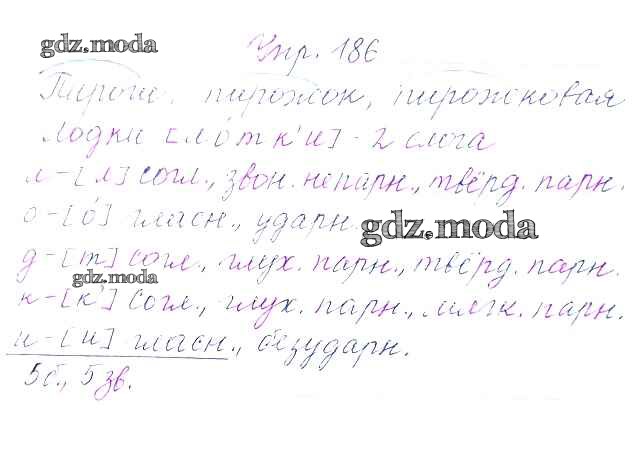 gdz.moda
Упр. 186
Пироги, пирожок, пирожковая
Лодки [ло́тк'и] - 2 слога
л - [л] согл., звон. непарн., твёрд. парн.
о - [о́] гласн., ударн.
gdz.moda
д - [т] согл., глух. парн., твёрд. парн.
gdz.moda
к - [к'] согл., глух. парн., мягк. парн.
и - [и] гласн., безударн.
5б., 5 зв.